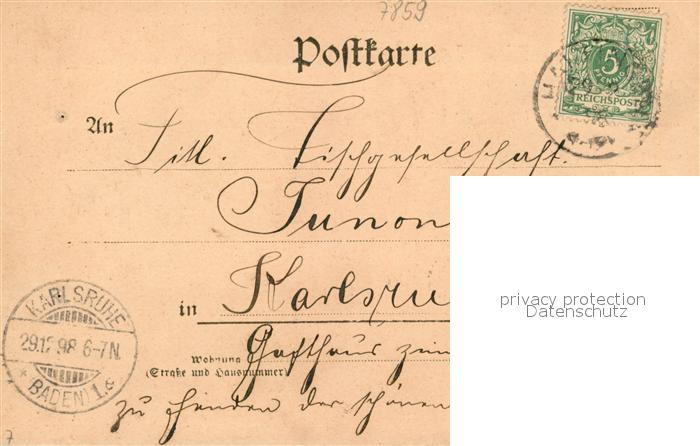 7859
Postkarte
5
PFENNIG
REICHSPOST
An Titl. Tischgesellschaft.
Junon
in Karlsru
KARLSRUHE
29.12.98 6-7N.
* (BADEN) 1.e
Wohnung
(Straße und Hausnummer)
Gasthaus zum
zu Handen der schönen
privacy protection
Datenschutz
7